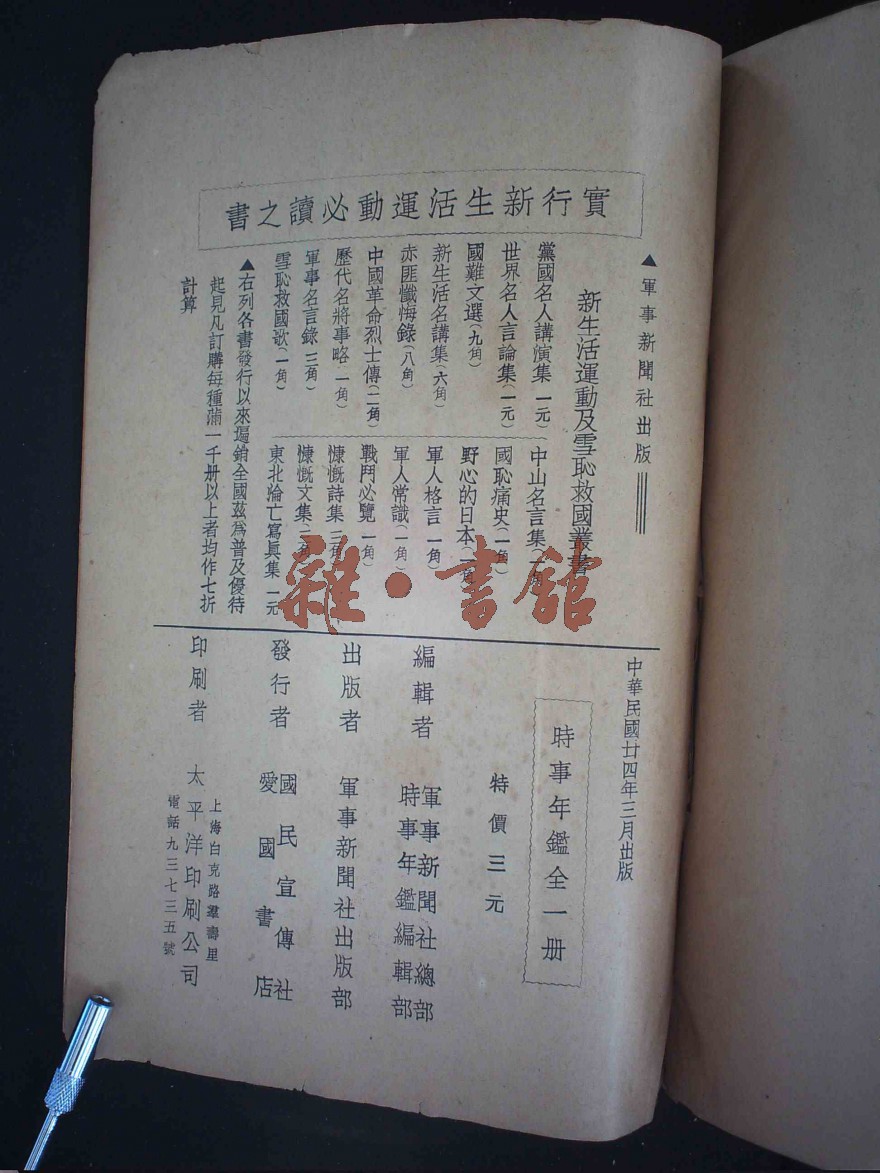 實行新生活運動必讀之書
▲軍事新聞社出版
新生活運動及雪恥救國叢書
黨國名人講演集(一元)
世界名人言論集(一元)
國難文選(九角)
新生活名講集(六角)
赤匪懺悔錄(八角)
中國革命烈士傳(二角)
歷代名將事略(一角)
軍事名言錄(三角)
雪恥救國歌(一角)
中山名言集(一角)
國恥痛史(一角)
野心的日本(一角)
軍人格言(一角)
軍人常識(一角)
戰鬥必覽(一角)
慷慨詩集(二角)
慷慨文集(二角)
東北淪亡寫眞集(一元)
▲右列各書發行以來遍銷全國茲爲普及優待
起見凡訂購每種滿一千册以上者均作七折
計算
中華民國廿四年三月出版
時事年鑑全一册
特價三元
編輯者 軍事新聞社總部
時事年鑑編輯部
出版者 軍事新聞社出版部
發行者 國民宣傳社
愛國書店
印刷者 太平洋印刷公司
上海白克路羣壽里
電話九三七三五號
雜·書館